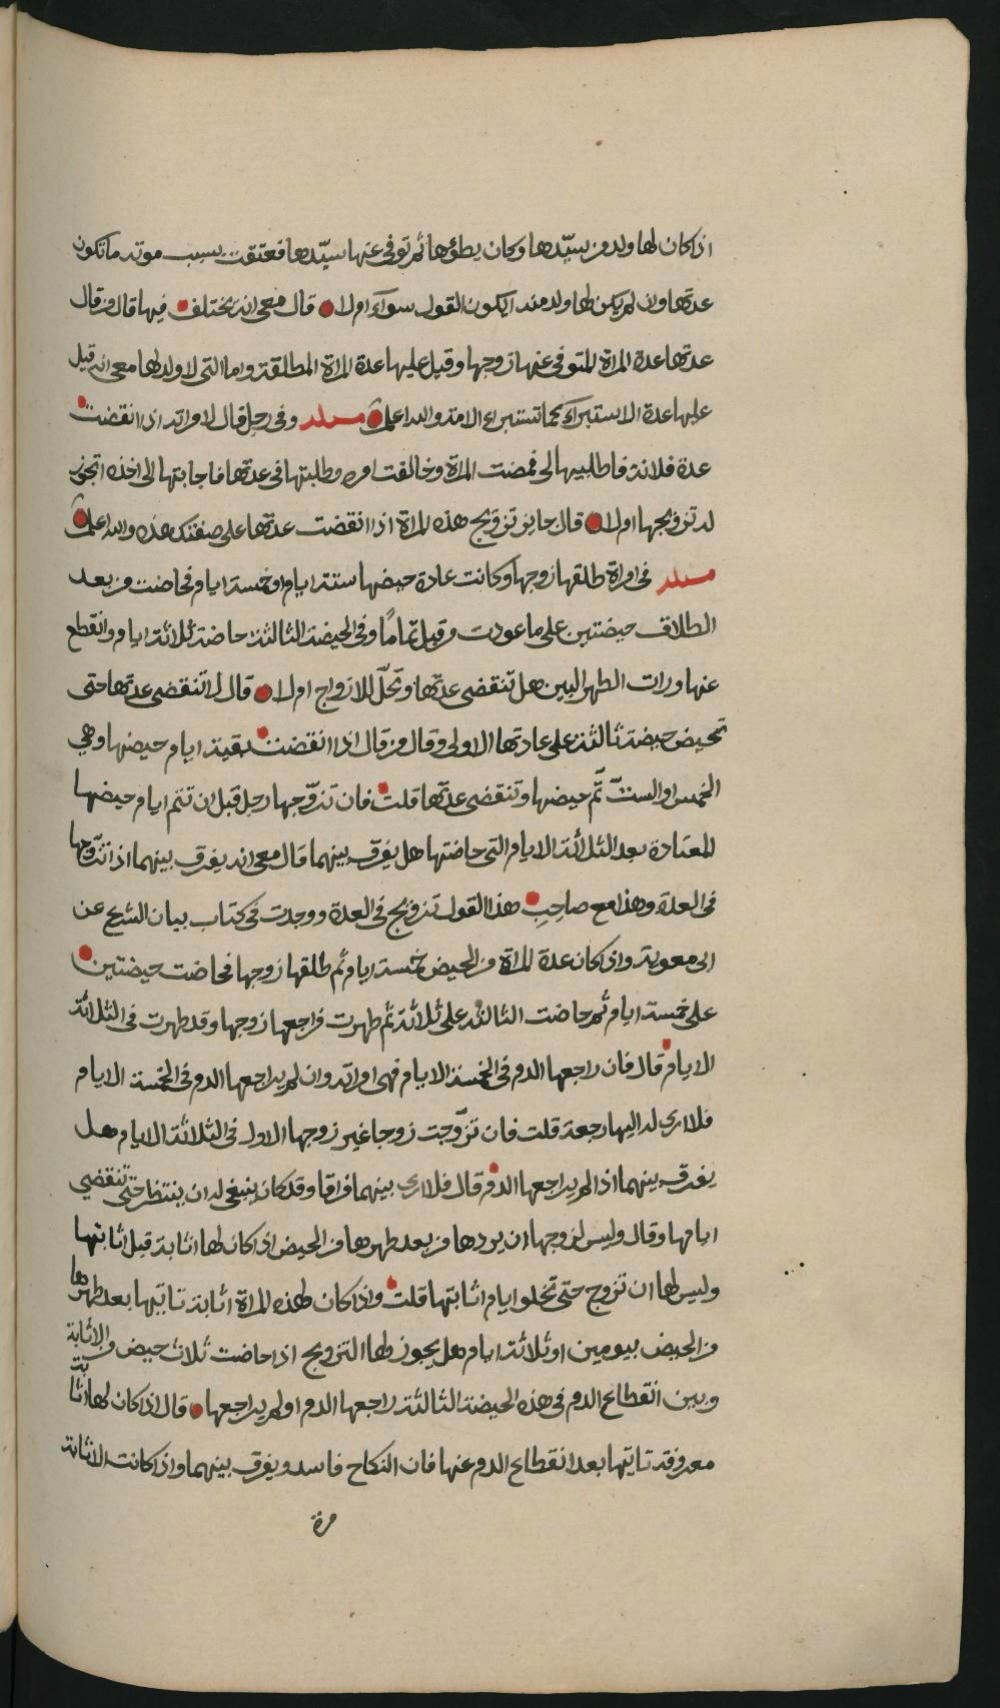 اذا كان لها ولد من سيّدها وكان يطؤها ثم توفى عنها سيّدها فعتقت بسبب موته ما تكون
عدتها وان لم يكن لها ولد منه ايكون القول سوآء ام لا قال معى انه يختلف فيها قال من قال
عدتها عدة المراة المتوفى عنها زوجها وقيل عليها عدة المراة المطالقة واما التى لا ولد لها معى انه قيل
عليها عدة الاستبراء كما تستبراء الامة والله اعلم مسئلة وفى رجل قال لامراته اذا انقضت
عدة فلانة فاطلبيها لى فمضت المراة وخالفت امره وطلبتها فى عدتها فاجابتها الى اخذه اتجوز
له تزويجها ام لا قال جايز تزويج هذه المراة اذا انقضت عدتها على صفتك هذه والله اعلم
مسئلة فى امراة طلقها زوجها وكانت عادة حيضها ستة ايام او خمسة ايام فحاضت من بعد
الطلاق حيضتين على ما عودت من قبل تمامًا وفى الحيضة الثالثة حاضة ثلاثة ايام وانقطع
عنها ورات الطهر البين هل تنقضى عدتها وتحلّ للازواج ام لا قال لا تنقضى عدتها حتى
تحيض حيضة ثالثة على عادتها الاولى وقال من قال اذا انقضت بقية ايام حيضها وهي
الخمس او الستّ تمّ حيضها وتنقضى عدتها قلت فان تزوّجها رجل قبل ان تتم ايام حيضها
المعتادة بعد الثلاثة الايام التى حاضتها هل يفرق بينهما قال معى انه يفرق بينهما اذا تزّوجها
فى العدة وهذا مع صاحِبِ هذا القول تزويج فى العدة ووجدت فى كتاب بيان الشرع عن
ابى معوية واذا كان عدة المراة من الحيض خمسة ايام ثم طلقها زوجها فحاضت حيضتين
على خمسة ايام ثم حاضت الثالثة على ثلاثة ثم طهرت فراجعها زوجها وقد طهرت فى الثلاثة
الايام قال فان راجعها الدم فى الخمسة الايام فهى امراته وان لم يراجعها الدم فى الخمسة الايام
فلا ارى له اليها رجعة قلت فان تزّوجت زوجا غير زوجها الاول فى الثلاثة الايام هل
يفرق بينهما اذا لم يراجعها الدم قال فلا ارى بينهما فراقا وقد كان ينبغى له ان ينتظر حتى تنقضي
ايامها وقال وليس لزوجها ان يردها من بعد طهرها من الحيض اذا كان لها اثابة قبل اثابتها
وليس لها ان تزوج حتى تخلو ايام اثابتها قلت واذا كان لهذه المراة اثابة تاتيها بعد طهرها
من الحيض بيومين او ثلاثة ايام هل يجوز لها التزويج اذا حاضت ثلاث حيض من الاثابة
وبين انقطاع الدم فى هذه الحيضة الثالثة راجعها الدم او لم يراجعها قال اذا كان لها اثابة
معروفة تاتيها بعد انقطاع الدم عنها فان النكاح فاسد ويفرق بينهما واذا كانت الاثابة
مرة